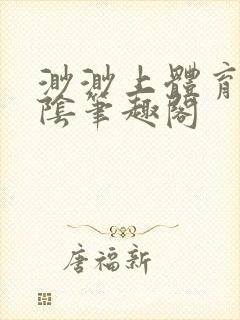 渺渺上體育
陰筆趣閣
唐福新